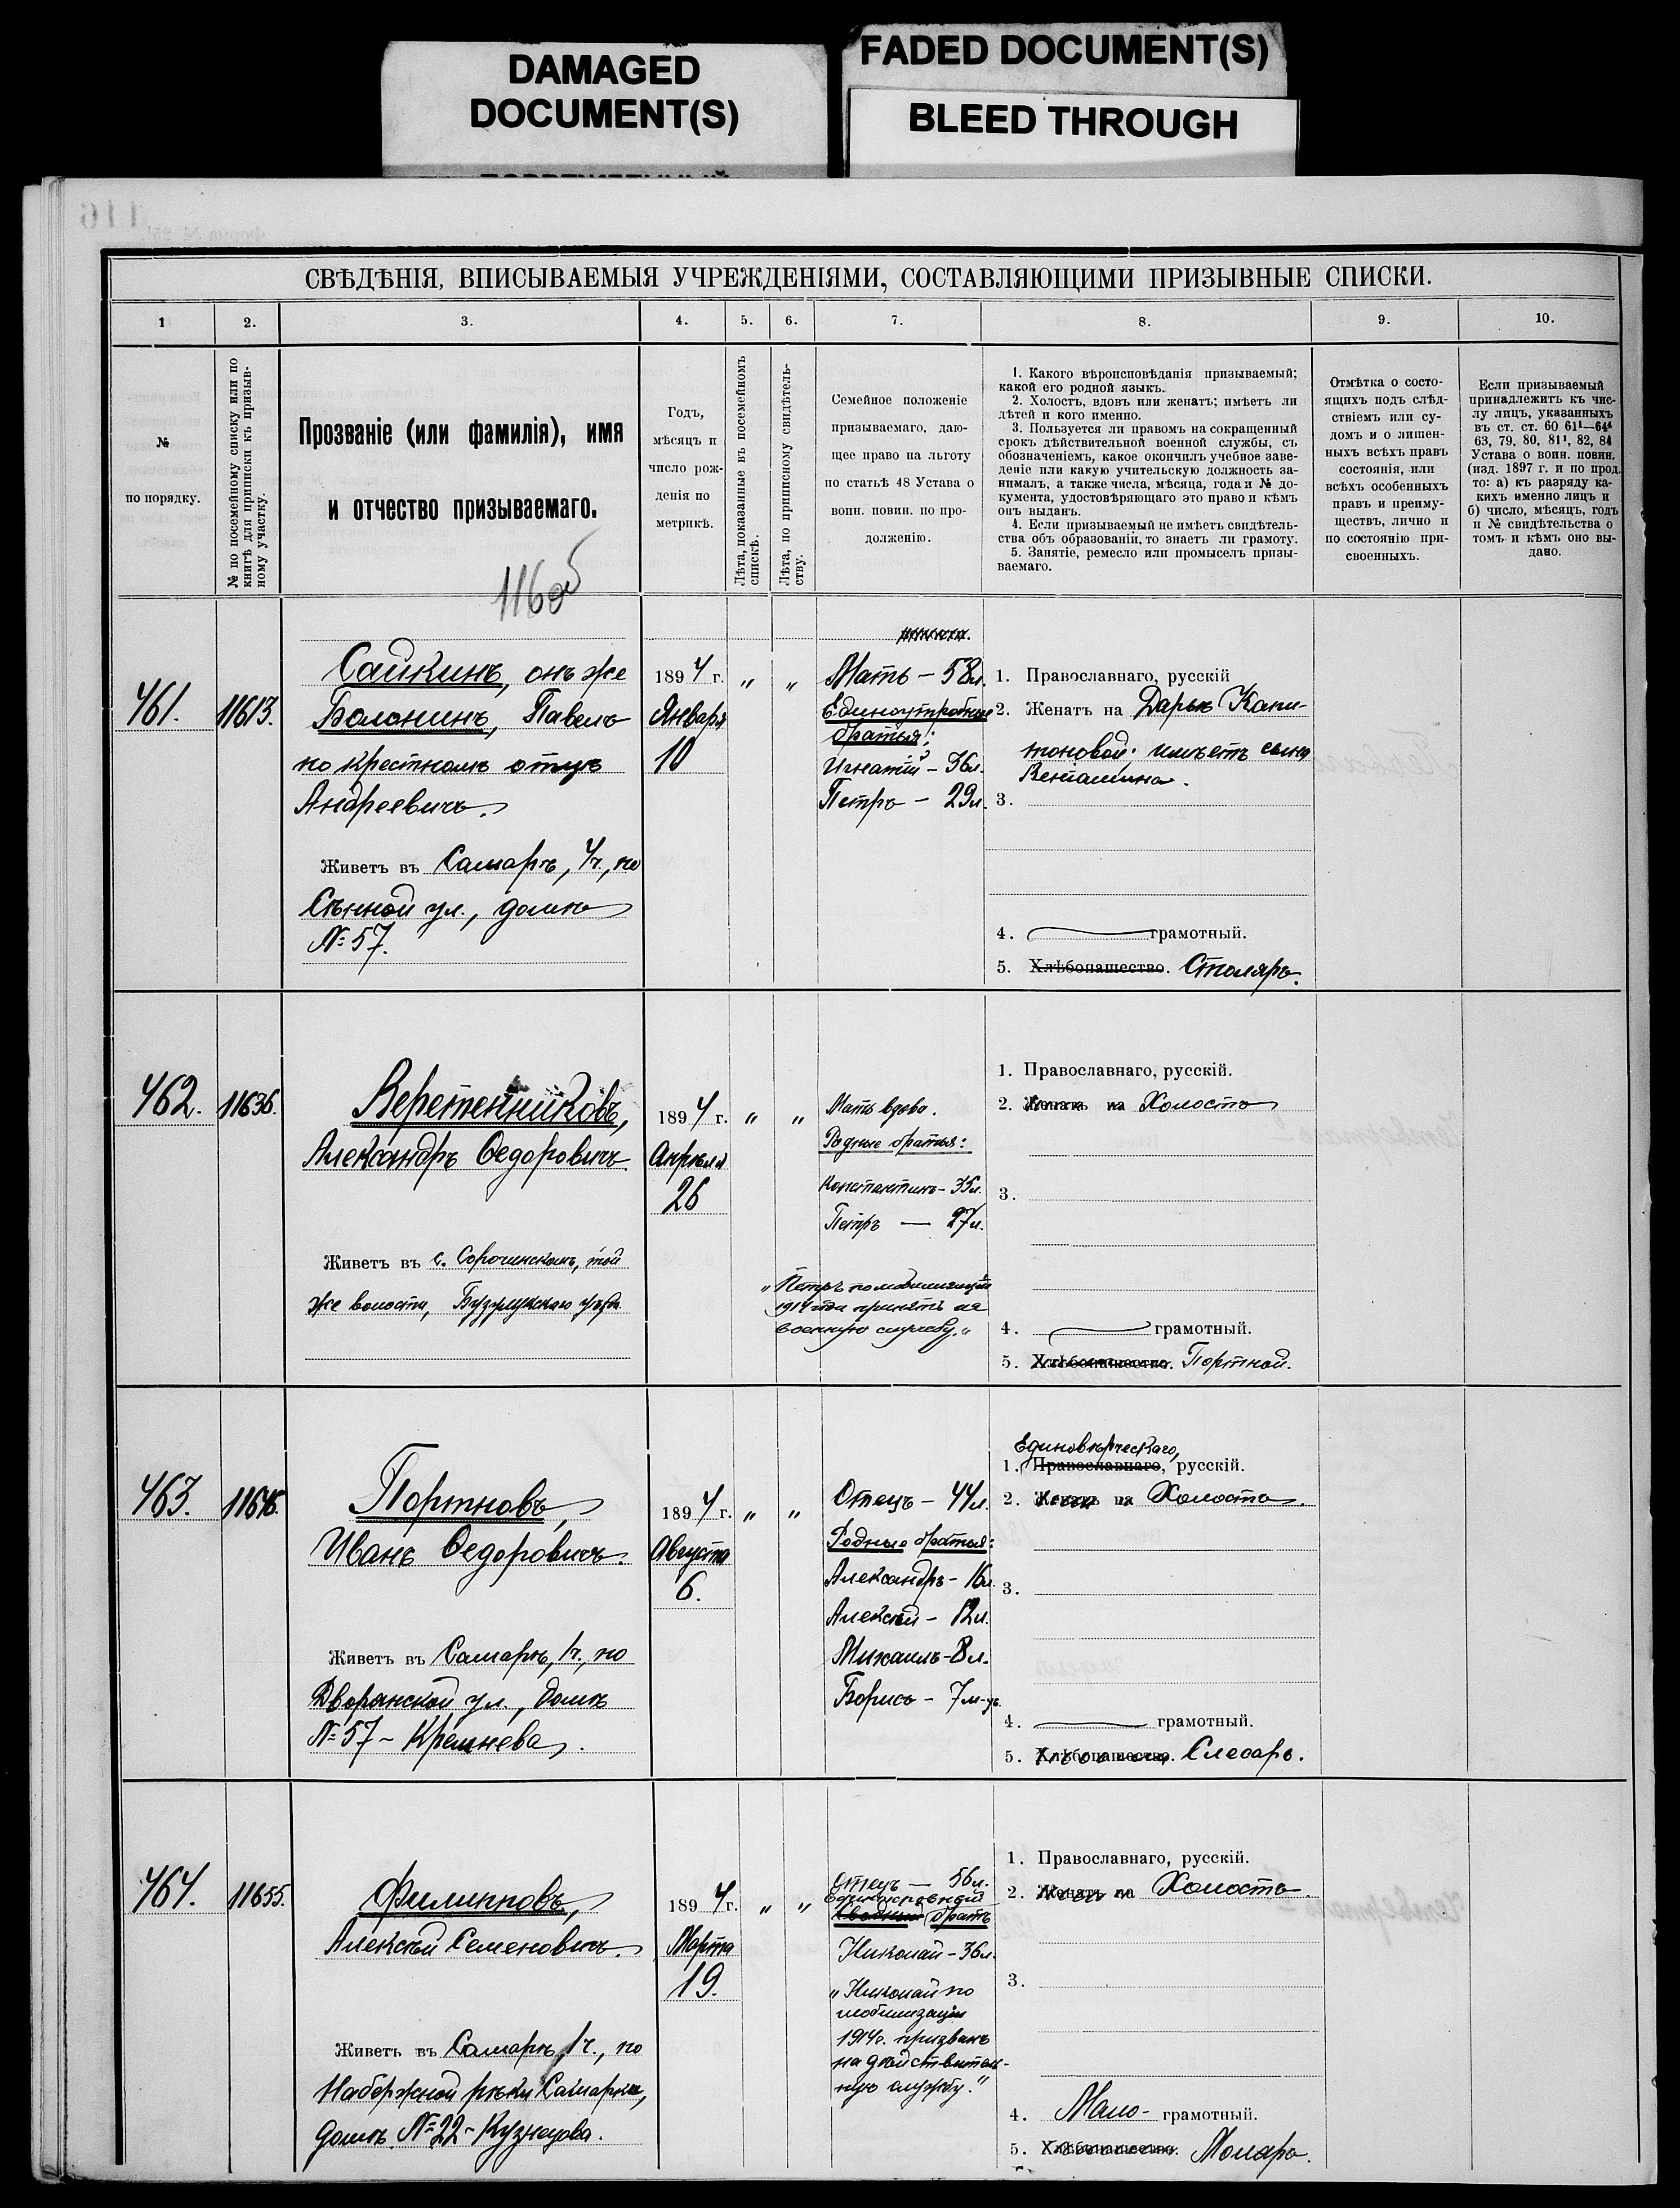 DAMAGED
DOCUMENT(S)
FADED DOCUMENT(S)
BLEED THROUGH
СВѢДѢНІЯ, ВПИСЫВАЕМЫЯ УЧРЕЖДЕНІЯМИ, СОСТАВЛЯЮЩИМИ ПРИЗЫВНЫЕ СПИСКИ.
1
2.
3.
4.
5.
6.
7.
8.
9.
10.
№
по порядку.
№ по посемейному списку или по
книгѣ для приписки къ призыв-
ному участку.
Прозваніе (или фамилія), имя
и отчество призываемаго.
Годъ,
мѣсяцъ и
число рож-
денія по
метрикѣ.
Лѣта, показанные въ посемейномъ
спискѣ.
Лѣта, по приписному свидѣтель-
ству.
Семейное положеніе
призываемаго, даю-
щее право на льготу
по статьѣ 48 Устава о
воин. повин. по про-
долженію.
1. Какого вѣроисповѣданія призываемый;
какой его родной языкъ.
2. Холостъ, вдовъ или женатъ; имѣетъ ли
дѣтей и кого именно.
3. Пользуется ли правомъ на сокращенный
срокъ дѣйствительной военной службы, съ
обозначеніемъ, какое окончилъ учебное заве-
деніе или какую учительскую должность за-
нималъ, а также числа, мѣсяца, года и № до-
кумента, удостовѣряющаго это право и кѣмъ
онъ выданъ.
4. Если призываемый не имѣетъ свидѣтель-
ства объ образованіи, то знаетъ ли грамоту.
5. Занятіе, ремесло или промыселъ призы-
ваемаго.
Отмѣтка о состо-
ящихъ подъ слѣд-
ствіемъ или су-
домъ и о лишен-
ныхъ всѣхъ правъ
состоянія, или
всѣхъ особенныхъ
правъ и преиму-
ществъ, лично и
по состоянію при-
своенныхъ.
Если призываемый
принадлежитъ къ чис-
лу лицъ, указанныхъ
въ ст. ст. 60 61¹—64⁴
63, 79, 80, 81¹, 82, 84
Устава о воин. повин.
(изд. 1897 г. и по прод.
то: а) къ разряду ка-
кихъ именно лицъ и
б) число, мѣсяцъ, годъ
и № свидѣтельства о
томъ и кѣмъ оно вы-
дано.
116об
461.
11613.
Сайкинъ, онъ же
Болонинъ, Павелъ
по крестномъ отцѣ
Андреевичъ.
Живетъ въ Самарѣ, 4ч., по
Сѣнной ул., домъ
№ 57.
1894 г.
Января
10
" "
Мать - 58л.
Единоутробные
братья:
Игнатій - 36л.
Петръ - 29л.
1. Православнаго, русскій
2. Женатъ на Дарьѣ Капи-
тоновой; имѣетъ сына
Веніамина.
3.
4. грамотный.
5. Хлѣбопашество. Столяръ.
462.
11636.
Веретенниковъ,
Александръ Ѳедоровичъ
Живетъ въ с. Сорочинскомъ, той
же волости, Бузулукскаго уѣзда
1894 г.
Апрѣля
26
" "
Мать вдова.
Родные братья:
Константинъ - 35л.
Петръ — 27л.
"Петръ по мобилизаціи
1914 года принятъ на
военную службу."
1. Православнаго, русскій.
2. Женатъ на Холостъ
3.
4. грамотный.
5. Хлѣбопашество. Портной.
463.
11646.
Портновъ,
Иванъ Ѳедоровичъ.
Живетъ въ Самарѣ, 1ч., по
Дворянской ул., домъ
№ 57 - Кремнева.
1894 г.
Августа
6.
" "
Отецъ - 44л.
Родные братья:
Александръ - 16л.
Алексѣй - 12л.
Михаилъ - 8л.
Борисъ - 7м-въ.
Единовѣрческаго,
1. Православнаго, русскій.
2. Женатъ на Холостъ.
3.
4. грамотный.
5. Хлѣбопашество. Слесарь.
464.
11655.
Филипповъ,
Алексѣй Семеновичъ.
Живетъ въ Самарѣ, 1ч., по
Набережной рѣки Самарки,
домъ № 22 - Кузнецова.
1894 г.
Марта
19.
" "
Отецъ — 56л.
Единокровный
Сводный братъ
Николай - 36л.
"Николай по
мобилизаціи
1914г. призванъ
на дѣйствитель-
ную службу."
1. Православнаго, русскій.
2. Женатъ на Холостъ.
3.
4. Мало- грамотный.
5. Хлѣбопашество. Маляръ.